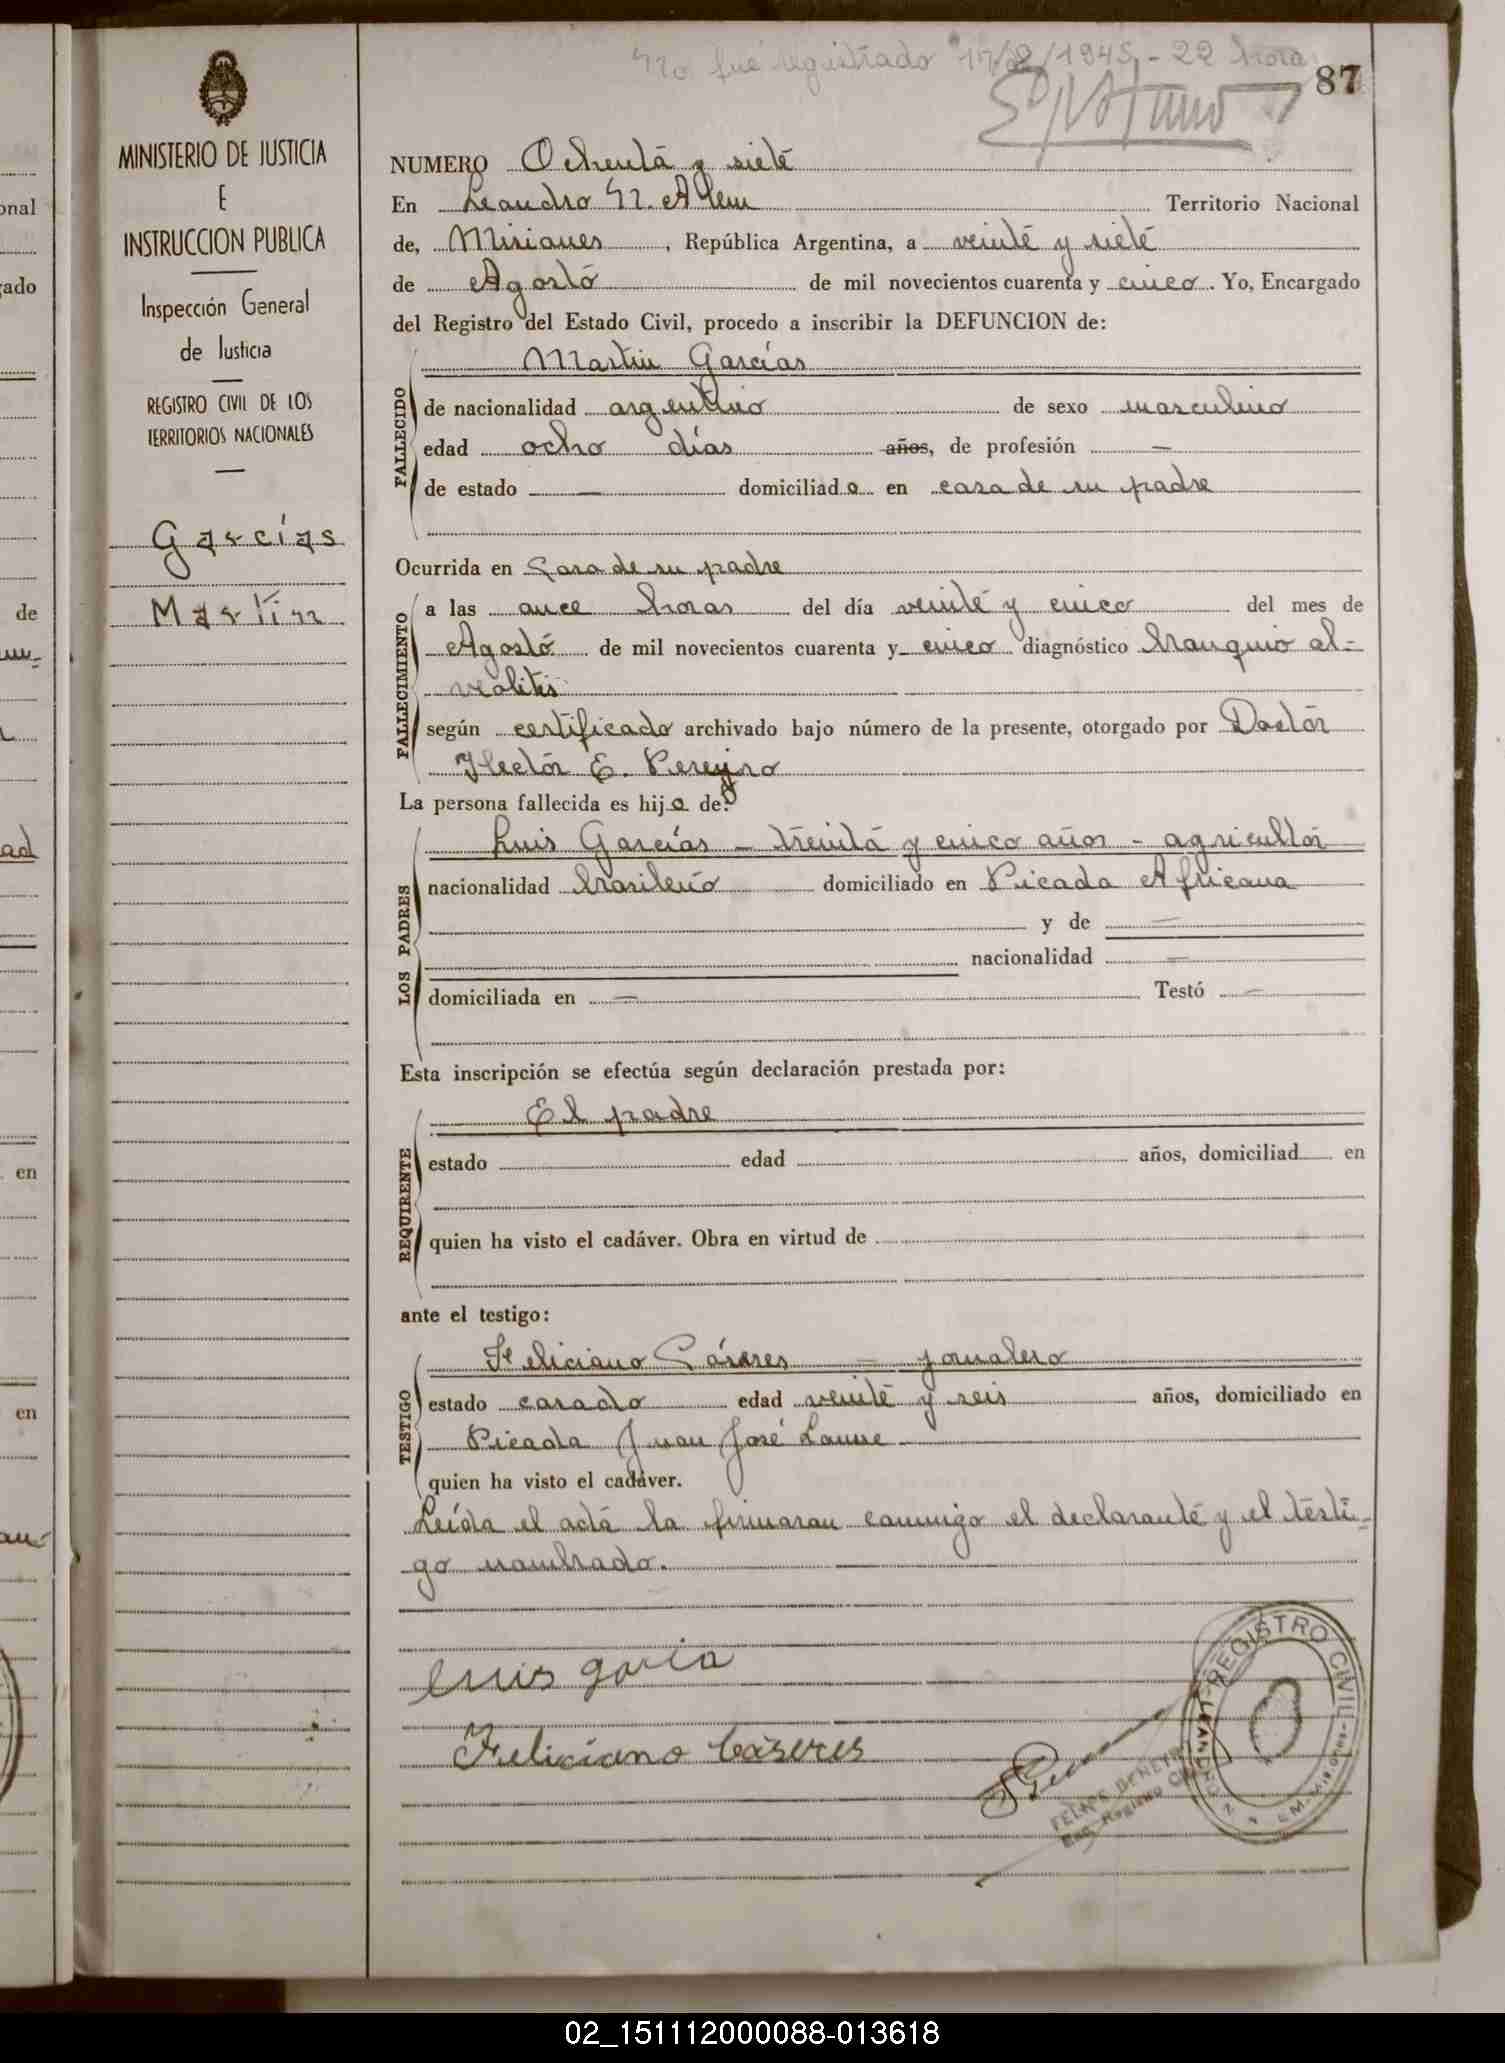 No fué registrado 17/8/1945 - 22 hora
87
MINISTERIO DE JUSTICIA
E
INSTRUCCION PUBLICA
Inspección General
de Justicia
REGISTRO CIVIL DE LOS
TERRITORIOS NACIONALES
Garcías
Martín
NUMERO Ochenta y siete
En Leandro N. Alem Territorio Nacional
de, Misiones, República Argentina, a veinte y siete
de Agosto de mil novecientos cuarenta y cinco. Yo, Encargado
del Registro del Estado Civil, procedo a inscribir la DEFUNCION de:
Martin Garcías
FALLECIDO
de nacionalidad argentino de sexo masculino
edad ocho días años, de profesión —
de estado — domiciliado en casa de su padre
Ocurrida en Casa de su padre
FALLECIMIENTO
a las once horas del día veinte y cinco del mes de
Agosto de mil novecientos cuarenta y cinco diagnóstico branquio al-
veolitis
según certificado archivado bajo número de la presente, otorgado por Doctor
Hector E. Pereyro
La persona fallecida es hijo de:
LOS PADRES
Luis Garcías – treinta y cinco años – agricultor
nacionalidad brasileño domiciliado en Picada Africana
y de —
nacionalidad —
domiciliada en — Testó —
Esta inscripción se efectúa según declaración prestada por:
El padre
REQUIRENTE
estado edad años, domiciliad en
quien ha visto el cadáver. Obra en virtud de
ante el testigo:
TESTIGO
Feliciano Cáseres – jornalero
estado casado edad veinte y seis años, domiciliado en
Picada Juan José Lanuse
quien ha visto el cadáver.
Leída el acta la firmaran conmigo el declarante y el testi-
go nombrado.
luis garcia
Feliciano Cáseres
REGISTRO CIVIL
LEANDRO N.
Enc. Registro Civil
02_151112000088-013618